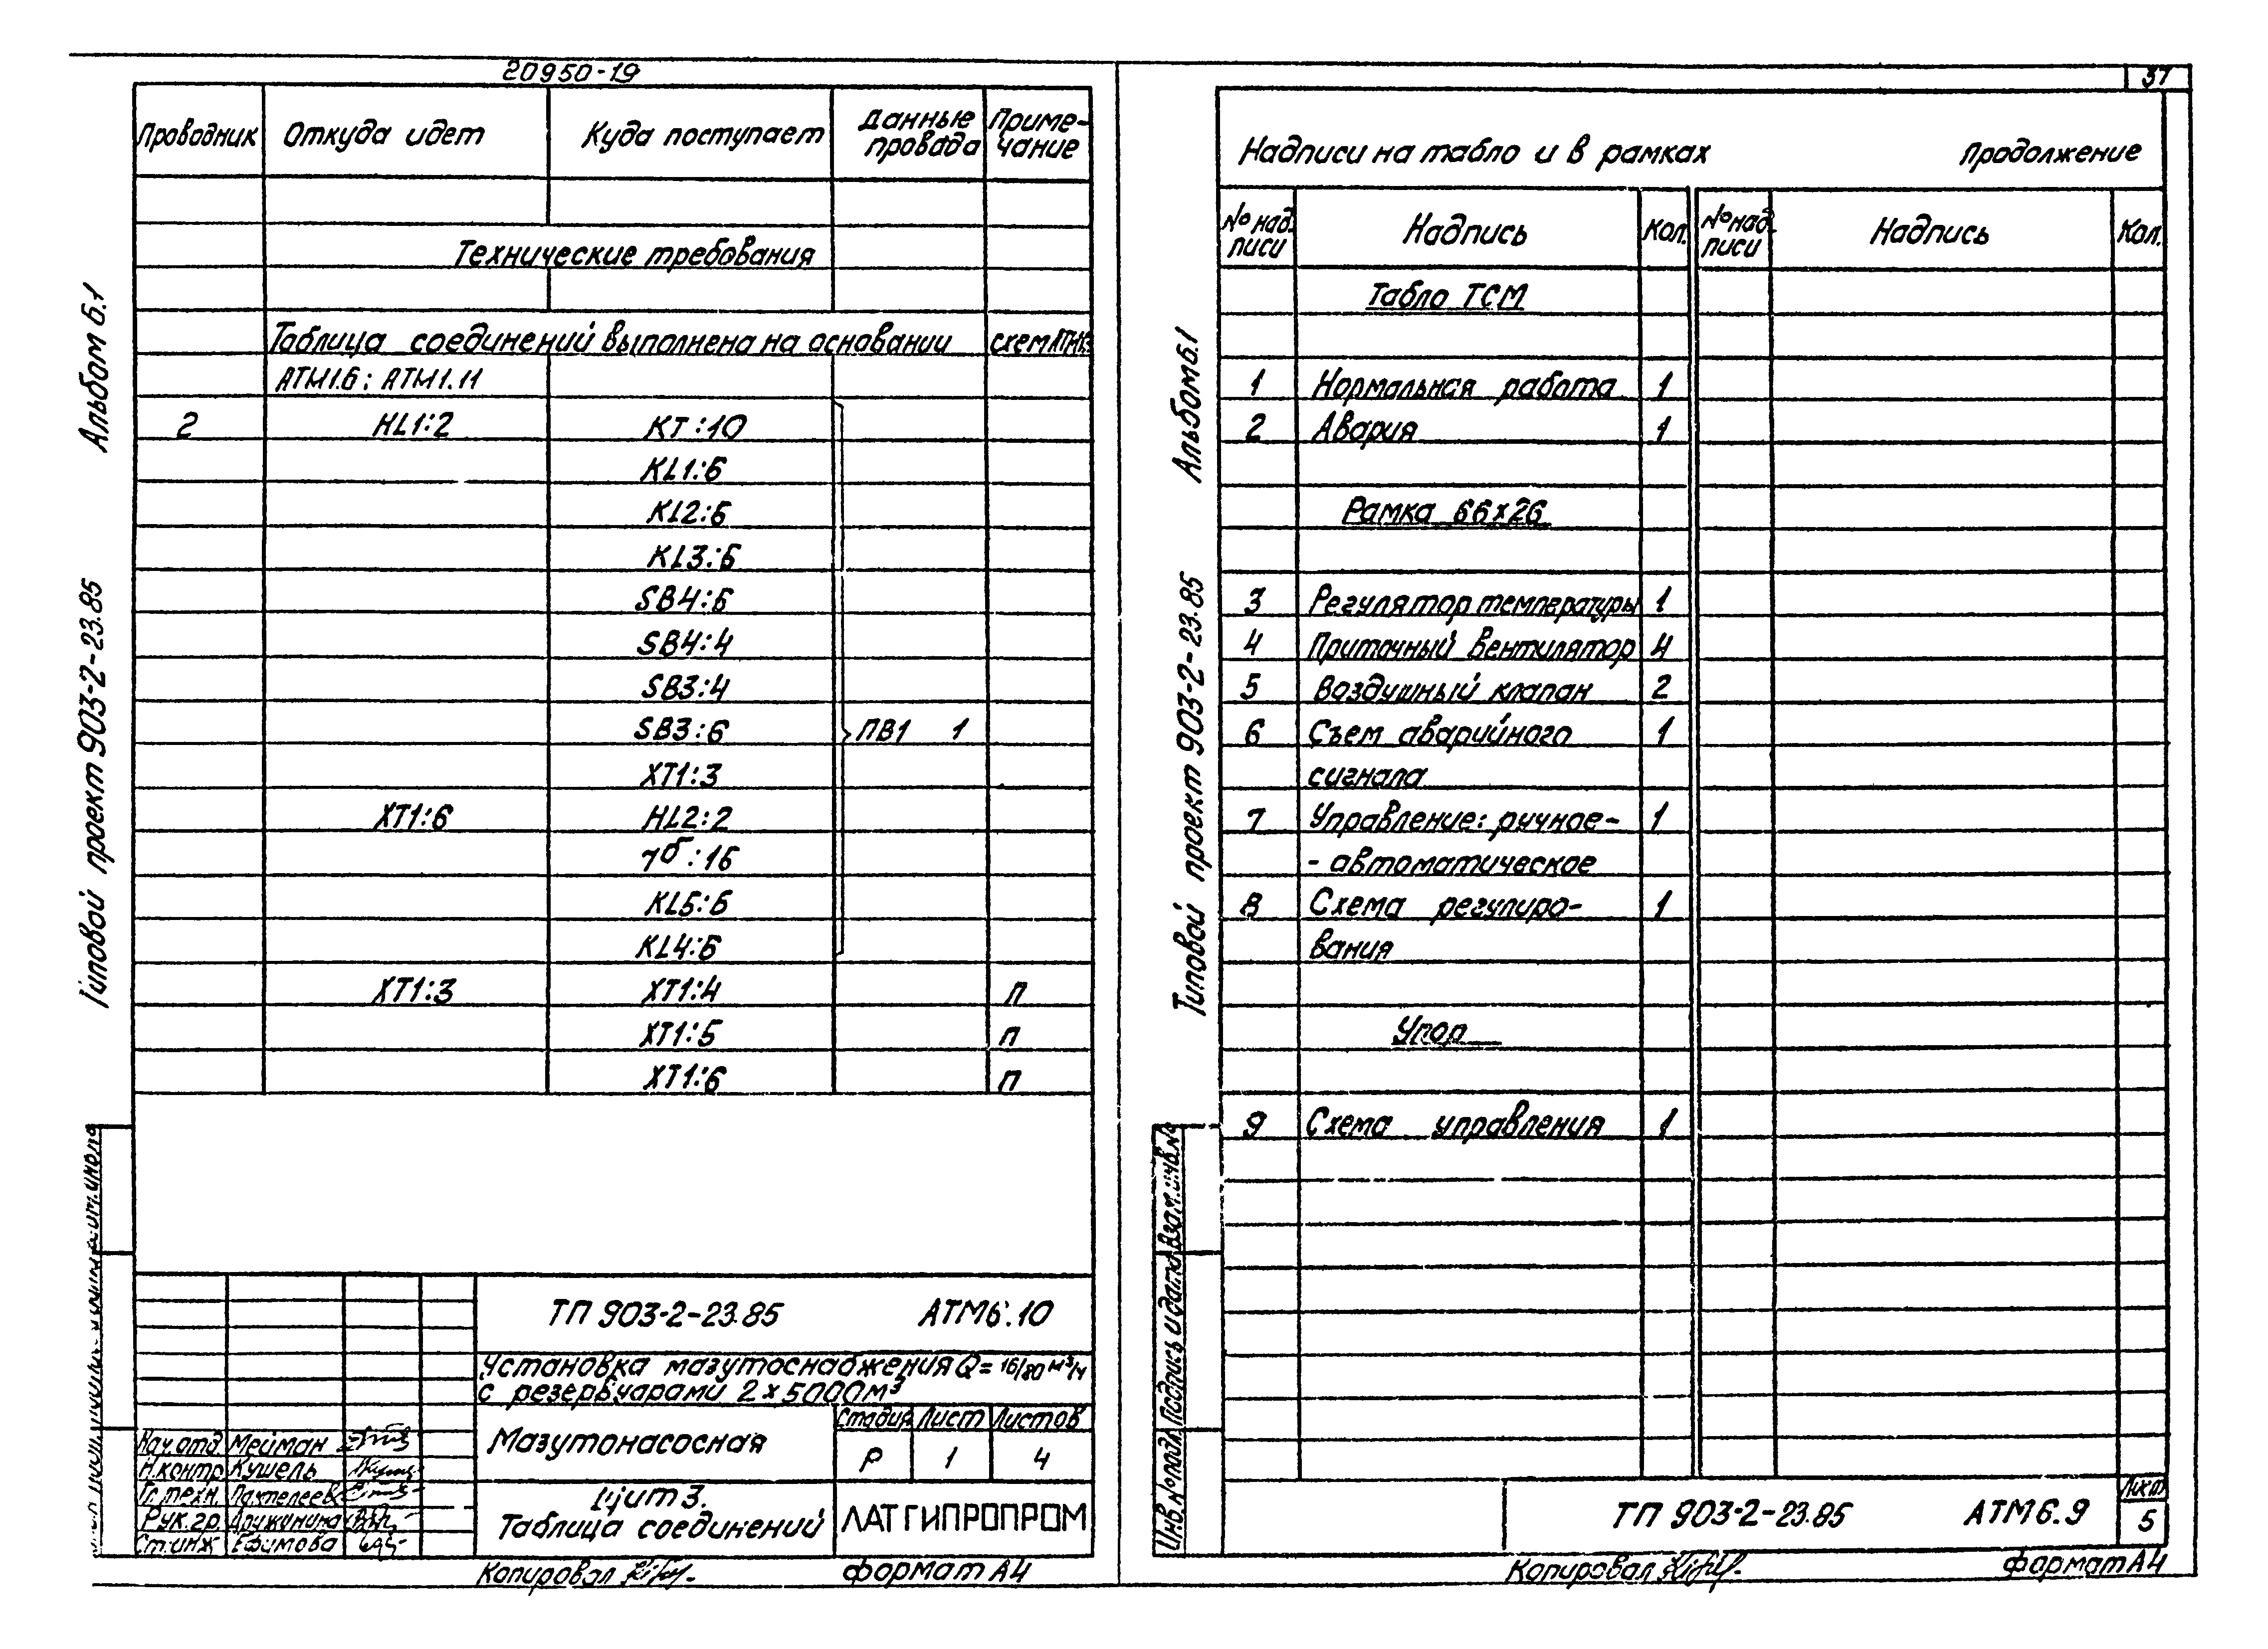 20950-19
37
Проводник Откуда идет Куда поступает Данные провода Приме-чание
Технические требования
Таблица соединений выполнена на основании схем
АТМ1.6; АТМ1.11
2 HL1:2 КТ:10
KL1:6
KL2:6
KL3:6
SB4:6
SB4:4
SB3:4
SB3:6 ПВ1 1
XT1:3
XT1:6 HL2:2
7б:16
KL5:6
KL4:6
XT1:3 XT1:4 П
XT1:5 П
XT1:6 П
Альбом 6.1
Типовой проект 903-2-23.85
ТП 903-2-23.85 АТМ6.10
Установка мазутоснабжения Q=16/80 м³/ч
с резервуарами 2×5000м³
Мазутонасосная
Стадия Лист Листов
Р 1 4
Щит 3.
Таблица соединений
ЛАТГИПРОПРОМ
Нач.отд. Мейман
Н.контр. Кушель
Гл.техн. Пантелеев
Рук.гр. Дружинина
Ст.инж. Ефимова
Копировал
формат А4
Надписи на табло и в рамках Продолжение
№ над-писи Надпись Кол. № над-писи Надпись Кол.
Табло ТСМ
1 Нормальная работа 1
2 Авария 1
Рамка 66×26
3 Регулятор температуры 1
4 Приточный вентилятор 4
5 Воздушный клапан 2
6 Съем аварийного 1
сигнала
7 Управление: ручное- 1
- автоматическое
8 Схема регулиро- 1
вания
Упор
9 Схема управления 1
Альбом 6.1
Типовой проект 903-2-23.85
Инв.№ подл. Подпись и дата Взам.инв.№
ТП 903-2-23.85 АТМ6.9
Лист
5
Копировал
формат А4